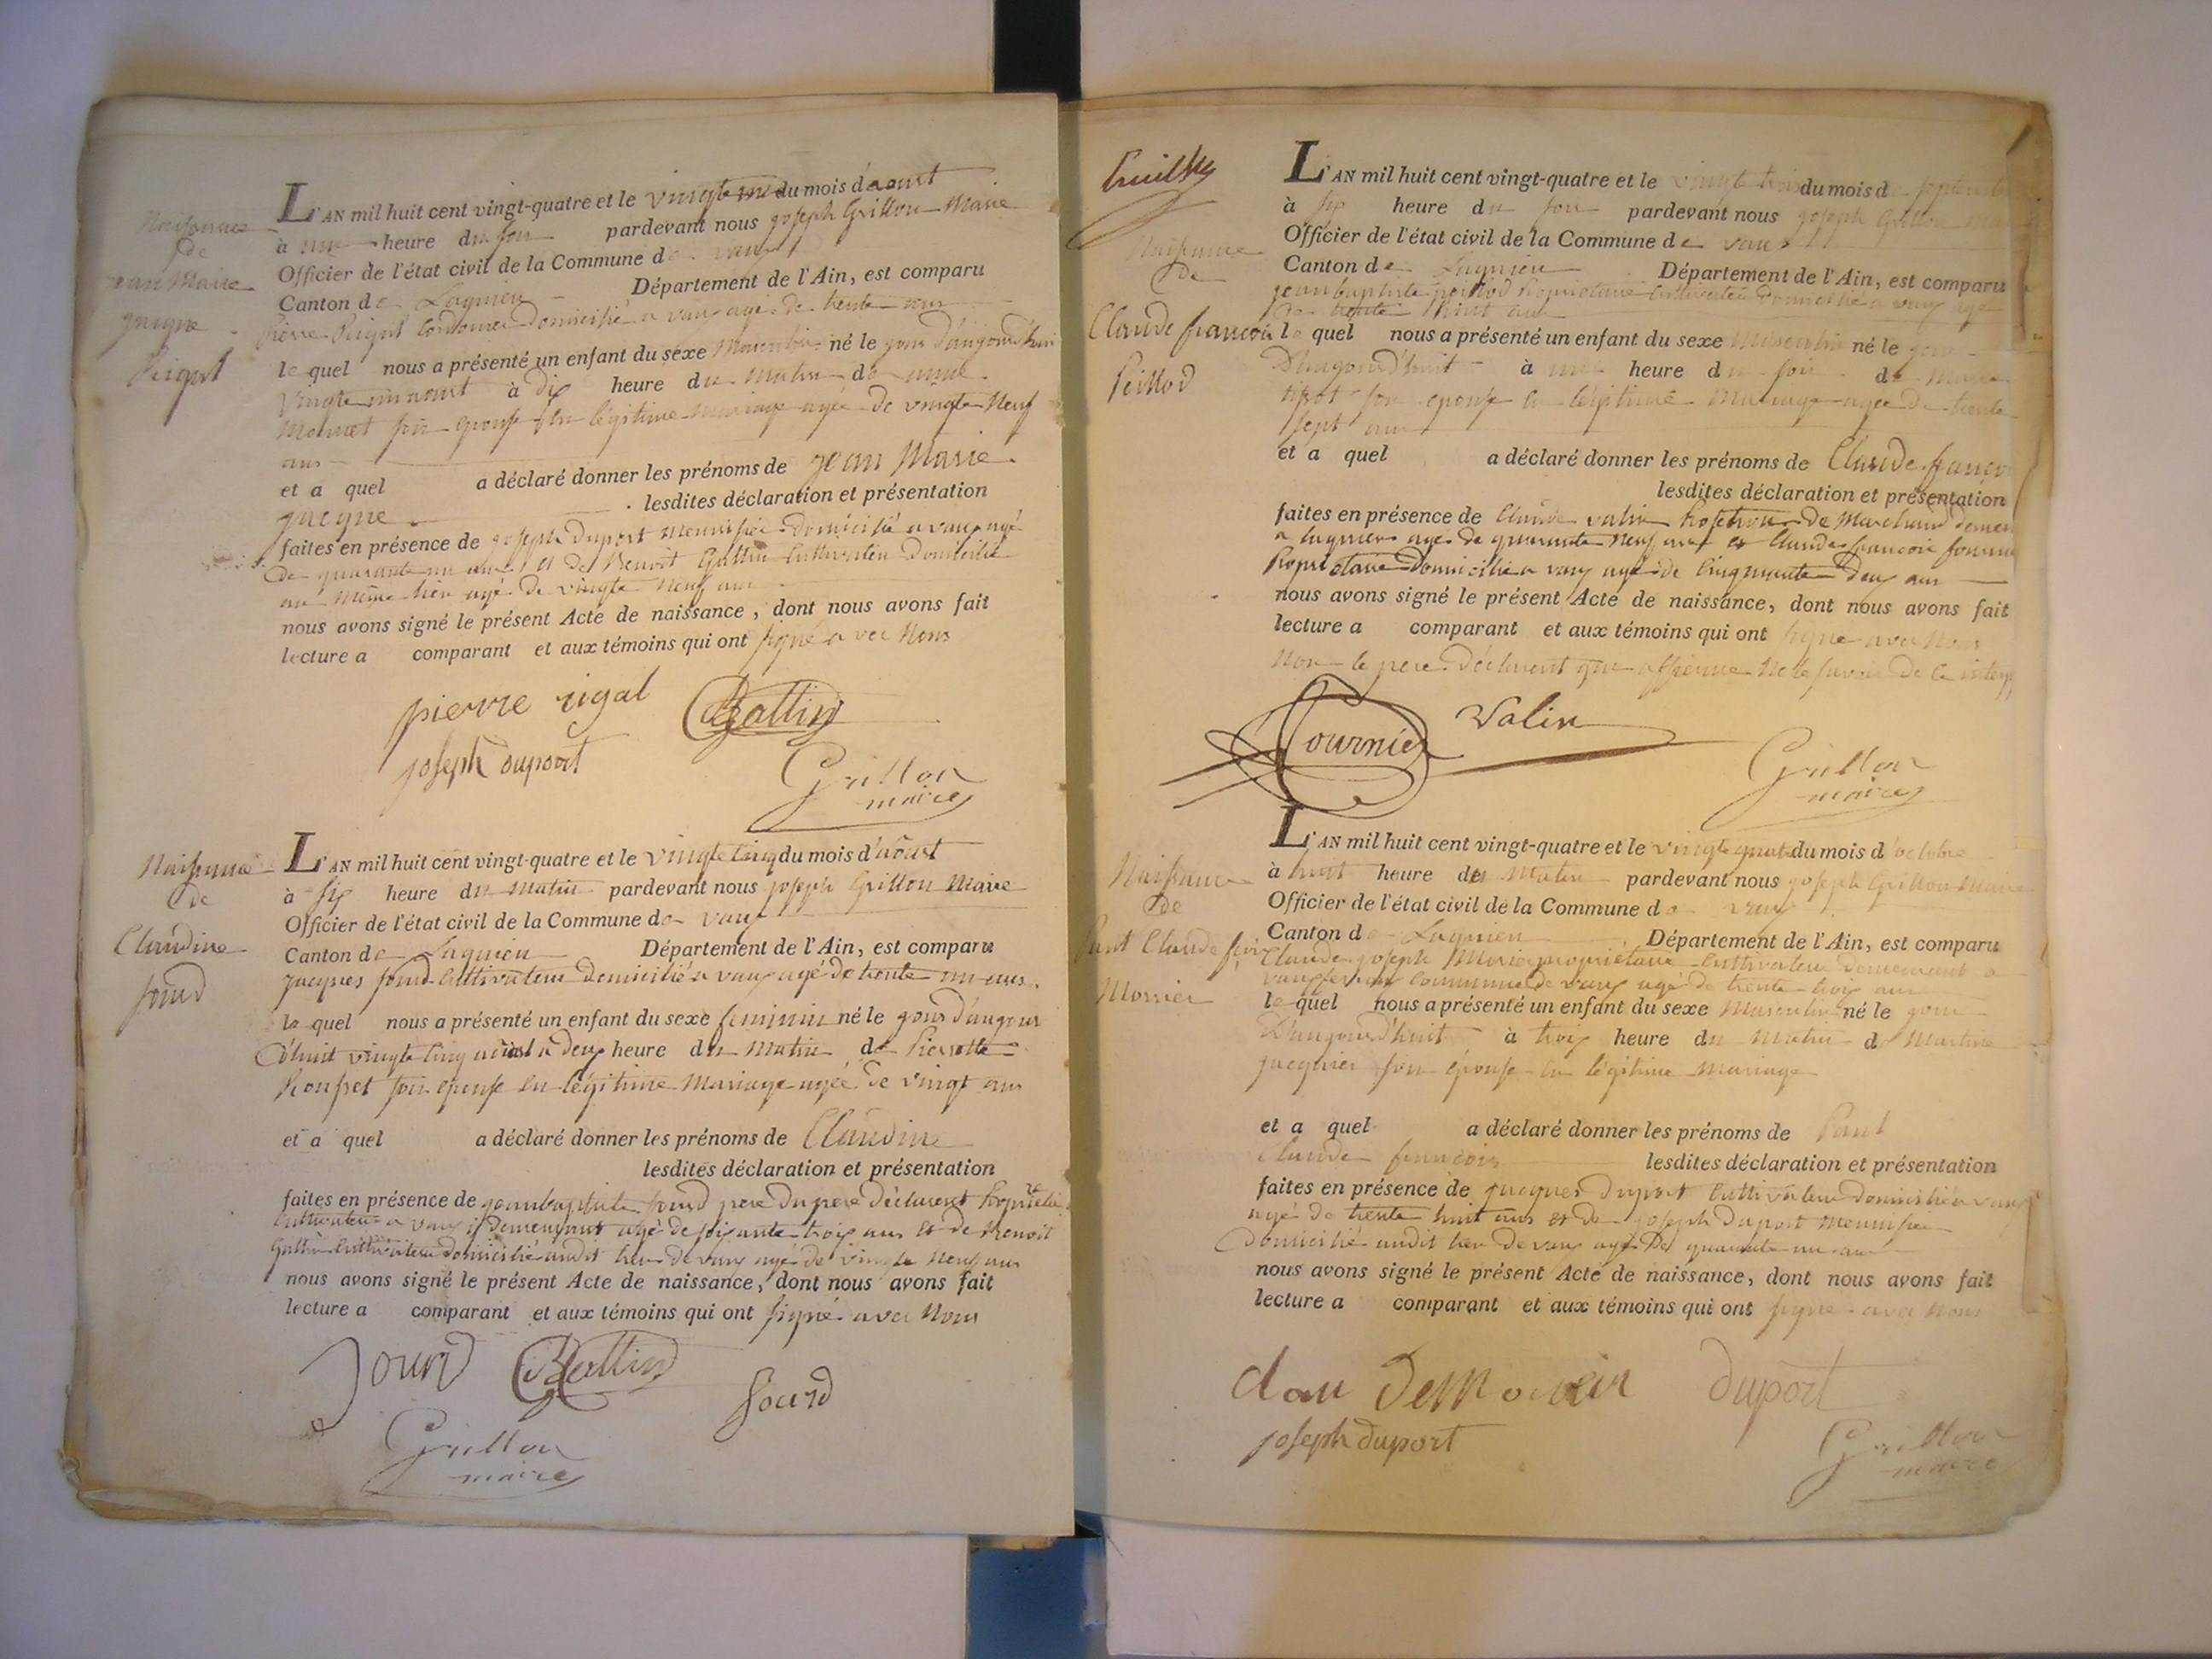 Naissance
de
jean Marie
jacque
Rigal
L'AN mil huit cent vingt-quatre et le vingte un du mois d'aoust
à une heure du soir pardevant nous joseph Grillon Maire
Officier de l'état civil de la Commune de vaux
Canton de Lagnieu Département de l'Ain, est comparu
pierre Rigal Cordonnier domicilié a vaux agé de trente ans
le quel nous a présenté un enfant du sexe Masculin né le jour d'aujourd'hui
vingte un aoust à dix heure du matin de anne
Monnet son epouse en légitime mariage agée de vingte neuf
ans
et a quel a déclaré donner les prénoms de jean Marie
jacque lesdites déclaration et présentation
faites en présence de joseph Duport Menuisier domicilié a vaux agé
de quarante un ans et de Benoit Gattin Cultivateur domicilié
au même lieu agé de vingte neuf ans
nous avons signé le présent Acte de naissance, dont nous avons fait
lecture a comparant et aux témoins qui ont signé avec Nous
pierre rigal BGattin
joseph duport
Grillon
maire
Naissance
de
Claudine
Jourd
L'AN mil huit cent vingt-quatre et le vingte cinq du mois d'aôust
à six heure du matin pardevant nous joseph Grillon Maire
Officier de l'état civil de la Commune de vaux
Canton de Lagnieu Département de l'Ain, est comparu
jacques Jourd Cultivateur domicilié a vaux agé de trente un ans
le quel nous a présenté un enfant du sexe feminin né le jour d'aujour
d'huit vingte cinq aoust a deux heure du matin de Pierrette
Rousset son epouse en légitime Mariage agée de vingt ans
et a quel a déclaré donner les prénoms de Claudine
lesdites déclaration et présentation
faites en présence de jeanbaptiste Jourd pere du pere déclarent Propriétaire
Cultivateur a vaux y demeurant agé de soixante trois ans et de Benoit
Gattin Cultivateur domicilié audit lieu de vaux agé de vingte neuf ans
nous avons signé le présent Acte de naissance, dont nous avons fait
lecture a comparant et aux témoins qui ont signé avec Nous
Jourd BGattin
Jourd
Grillon
maire
Naissance
de
Claude francois
Peillod
L'AN mil huit cent vingt-quatre et le vingte trois du mois de septembre
à six heure du soir pardevant nous joseph Grillon
Officier de l'état civil de la Commune de vaux
Canton de Lagnieu Département de l'Ain, est comparu
jeanbaptiste peillod Propriétaire Cultivateur domicilié a vaux agé
de trente huit ans
le quel nous a présenté un enfant du sexe Masculin né le jour
D'aujourd'huit à une heure du soir de Marie
son epouse en légitime Mariage agée de trente
sept ans
et a quel a déclaré donner les prénoms de Claude francois
lesdites déclaration et présentation
faites en présence de Claude valin de Marchand
a Lagnieu agé de quarante neuf ans et Claude francois
Propriétaire domicilié a vaux agé de Cinquante deux ans
nous avons signé le présent Acte de naissance, dont nous avons fait
lecture a comparant et aux témoins qui ont signé avec Nous
Non le pere déclarent que Ne le savoir de ce
Fournier Valin
Grillon
maire
Naissance
de
Paul Claude
Morrier
L'AN mil huit cent vingt-quatre et le vingte quatre du mois d'octobre
à huit heure du Matin pardevant nous joseph Grillon Maire
Officier de l'état civil de la Commune de vaux
Canton de Lagnieu Département de l'Ain, est comparu
Claude joseph propriétaire Cultivateur demeurant a
commune de vaux agé de trente trois ans
le quel nous a présenté un enfant du sexe Masculin né le jour
D'aujourd'huit à trois heure du Matin de Martine
jacquier son épouse en légitime mariage
et a quel a déclaré donner les prénoms de Paul
Claude francois lesdites déclaration et présentation
faites en présence de jacques Duport Cultivateur domicilié a vaux
agé de trente huit ans et de joseph Duport Menuisier
Domicilié audit lieu de vaux agé De quarante un ans
nous avons signé le présent Acte de naissance, dont nous avons fait
lecture a comparant et aux témoins qui ont signé avec Nous
duport
joseph duport
Grillon
maire